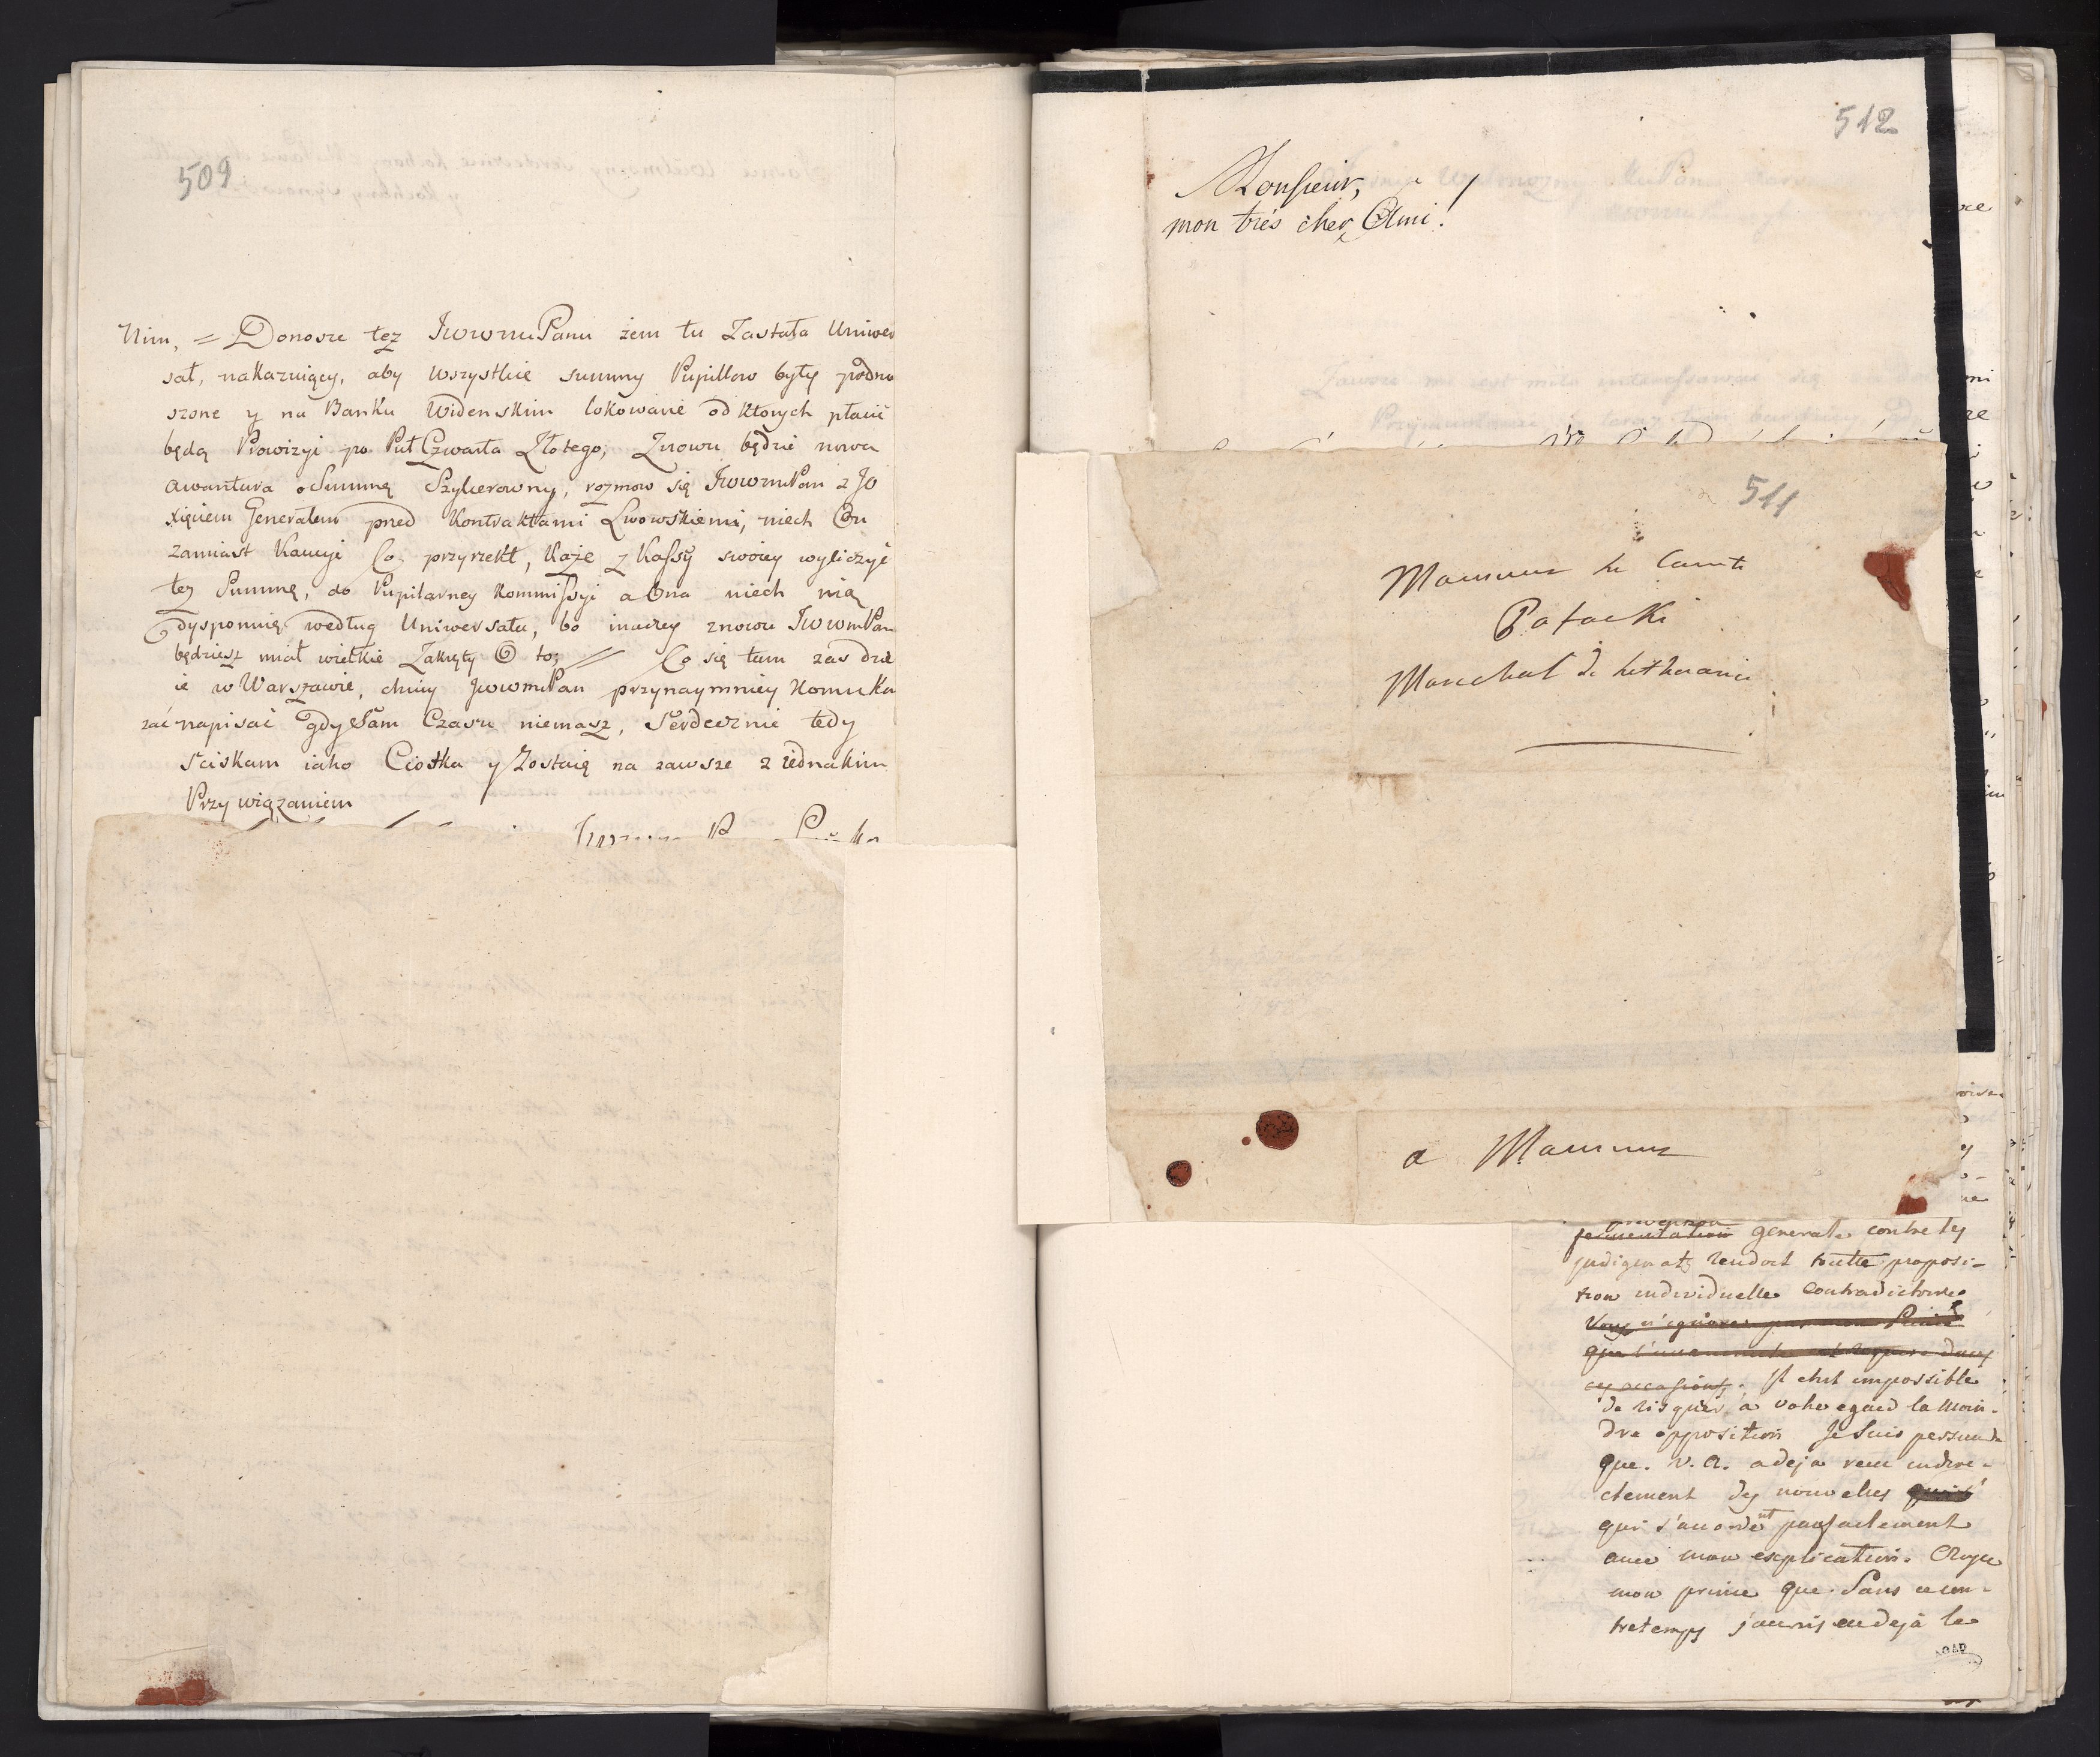 509
Nim, = Donosze tez JWWmuPanu żem tu Zastała Uniwer
sał, nakazuiący, aby wszystkie summy Pupillow były podno
szone y na Banku Widenskim lokowane od ktorych płacić
będą Prowizyi po Puł Czwarta Złotego; Znowu będzie nowa
awantura o Summę Szylerowny, rozmow się JWWmPan z JO
Xięciem Generałem pred Kontraktami Lwowskiemi, niech On
zamiast Kaucyi Co przyrzekł, Każe z Kassy swoiey wyliczyć
tęz Summę, do Pupilarney Kommissyi a Ona niech nią
dysponuię według Uniwersału, bo inaczey znowu JWWmPan
będziesz miał wielkie Zakręty O to; // Co się tam zas dzie
ie w Warszawie, chciey JWWmPan przynaymniey Komu Ka
zać napisać gdy Sam Czasu niemasz, Serdecznie tedy
sciskam iako Ciotka y Zostaię na zawsze z iednakim
Przywiązaniem
512
Monsieur,
mon trés cher Ami!
511
Monsieur le Comte
Potocki
Marechal de Lithuanie
a Monsieur
fermentation generale contre les
indigenats rendoit toutte proposi-
tion individuelle contradictoire.
Vous n'ignorez pas mon Prince
que l'unanimité est requise dans
ces occasions. Il etoit impossible
de risquer a votre egard la moin-
dre opposition Je suis persuadé
que. V. A. a deja recu indire-
ctement des nouvelles
qui s'accordent parfaitement
avec mon explication. Croyez
mon prince que sans ce con-
tretemps j'aurois eu dejà le
AGAD